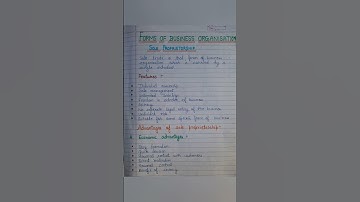 FORMS OF BUSINESS ORGANISATION
SOLE PROPRIETORSHIP
Sole trader is that form of business
organisation which is controlled by a
single individual
Features :-
Individual ownership
Sole management
Unlimited liability
Freedom in selection of business
Secrecy
No separate legal entity of the business
Unlimited risk
Suitable for some special form of business
Advantages of sole proprietorship:-
Economic advantages :-
Easy formation
Quick decision
Personal contact with customers
Direct motivation
Personal control
Benefit of secrecy